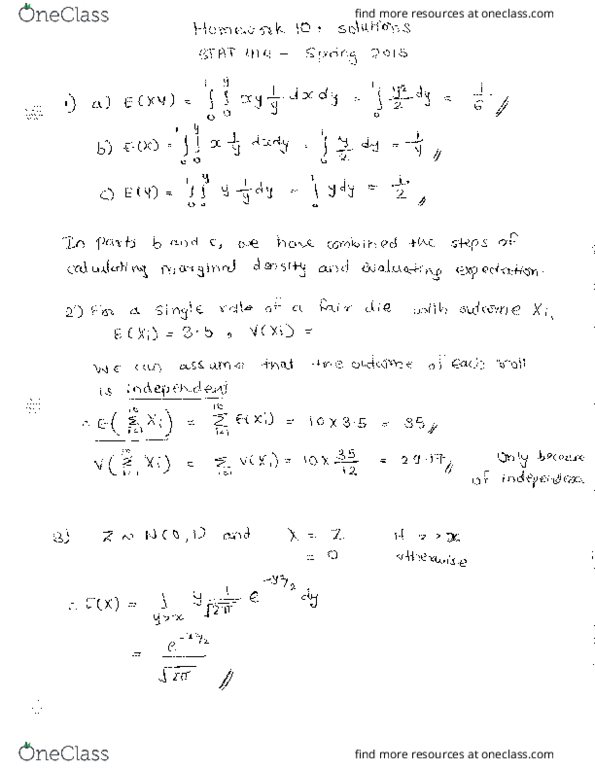 OneClass
find more resources at oneclass.com
Homework 10: solutions
STAT 414 - Spring 2015
1) a) E(XY) = ∫₀¹∫₀ʸ xy 1/y dx dy = ∫₀¹ y²/2 dy = 1/6 //
b) E(X) = ∫₀¹∫₀ʸ x 1/y dxdy = ∫₀¹ y/2 dy = 1/4 //
c) E(Y) = ∫₀¹∫₀ʸ y 1/y dy = ∫₀¹ y dy = 1/2 //
In parts b and c, we have combined the steps of
calculating marginal density and evaluating expectation.
2) For a single of a fair die with outcome Xi,
E(Xi) = 3.5, V(Xi) =
We can assume that the outcome of each roll
is independent
∴ E(∑ᵢ₌₁¹⁰ Xi) = ∑ᵢ₌₁¹⁰ E(Xi) = 10 x 3.5 = 35 //
V(∑ᵢ₌₁¹⁰ Xi) = ∑ᵢ₌₁¹⁰ V(Xi) = 10 x 35/12 = 29.17 // Only because
of independence
3) Z ~ N(0,1) and X = Z if z > x
= 0 otherwise
∴ E(X) = ∫y>x y 1/√2π e^-y²/2 dy
= e^-x²/2 / √2π //
OneClass
find more resources at oneclass.com